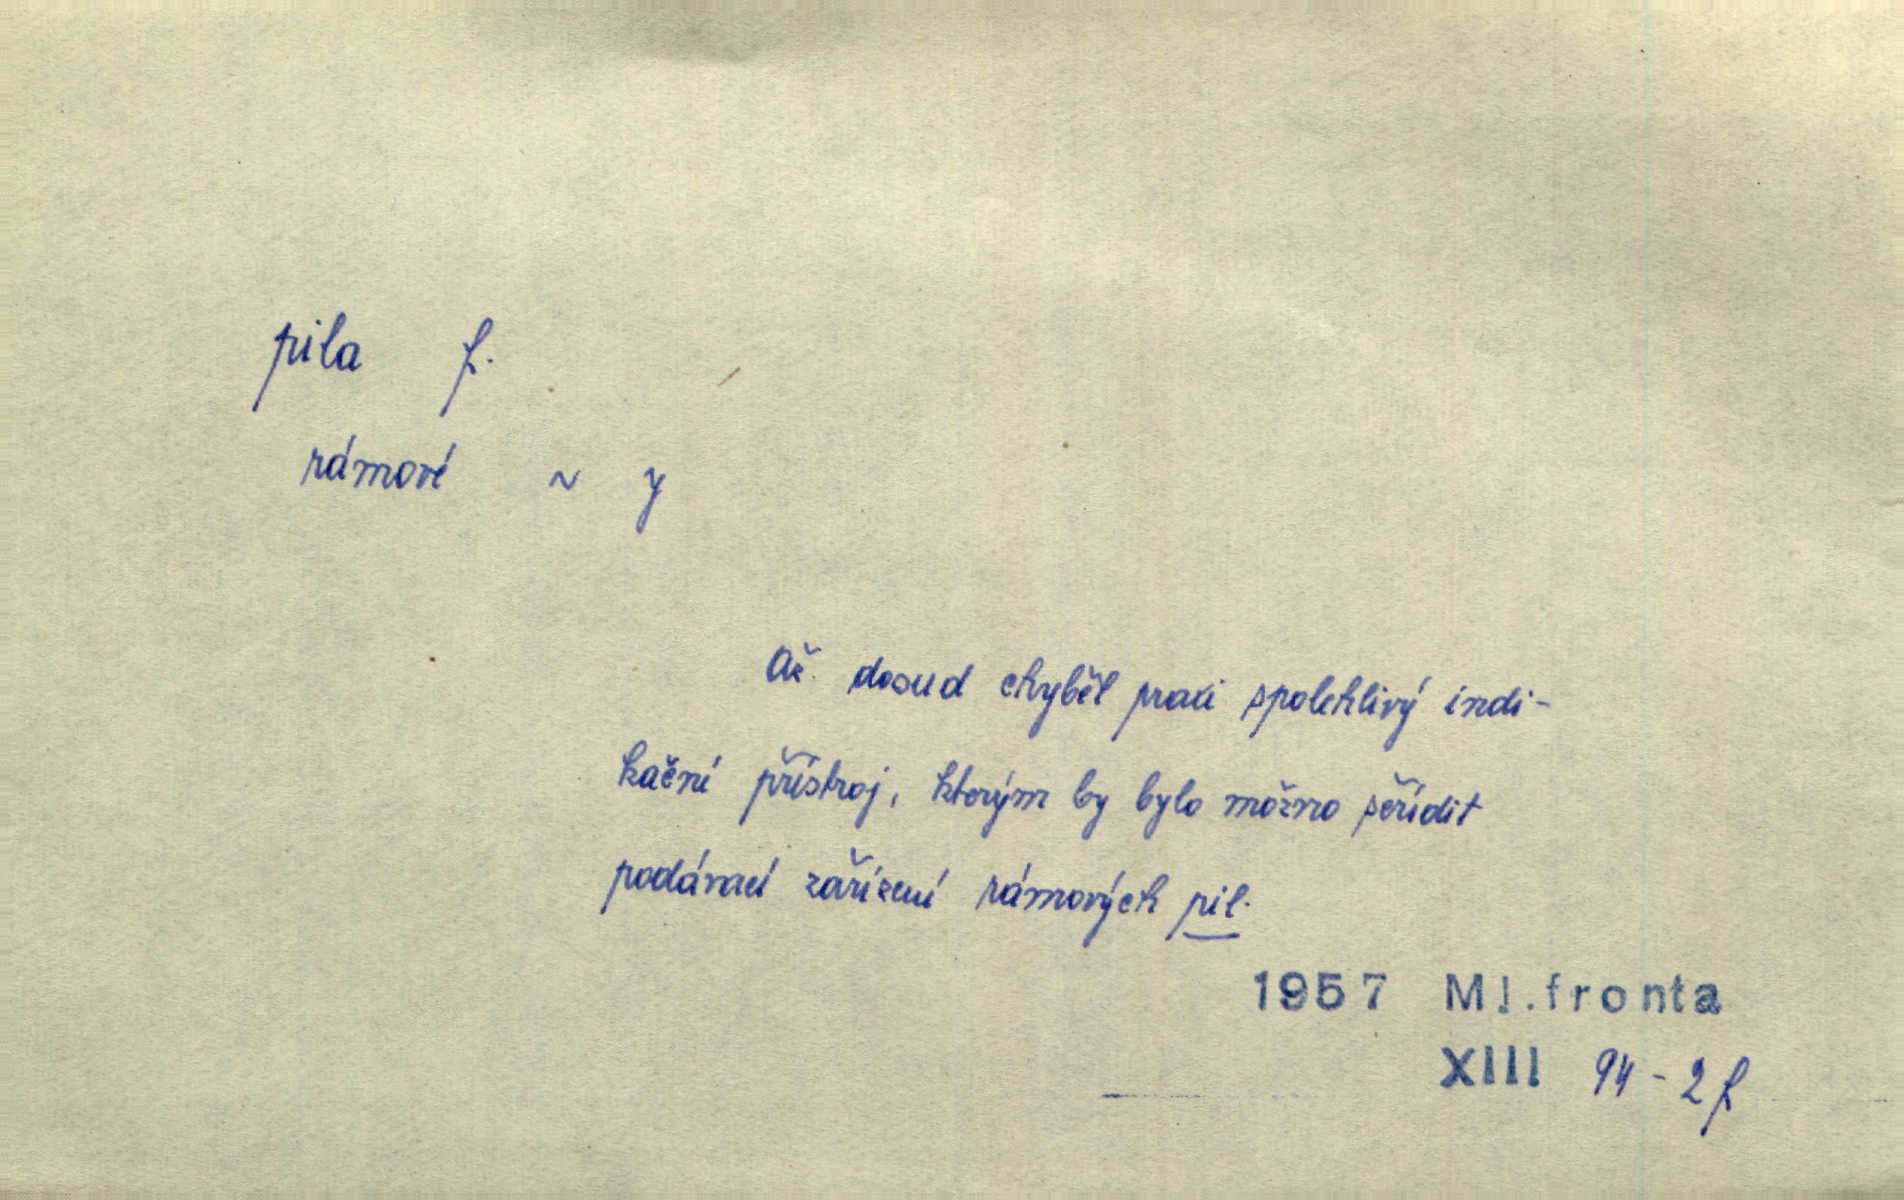 pila f.
rámové ~ y
Až dosud chyběl praxi spolehlivý indi-
kační přístroj, kterým by bylo možno seřídit
podávací zařízení rámových pil.
1957 Ml.fronta
XIII 94 - 2 f